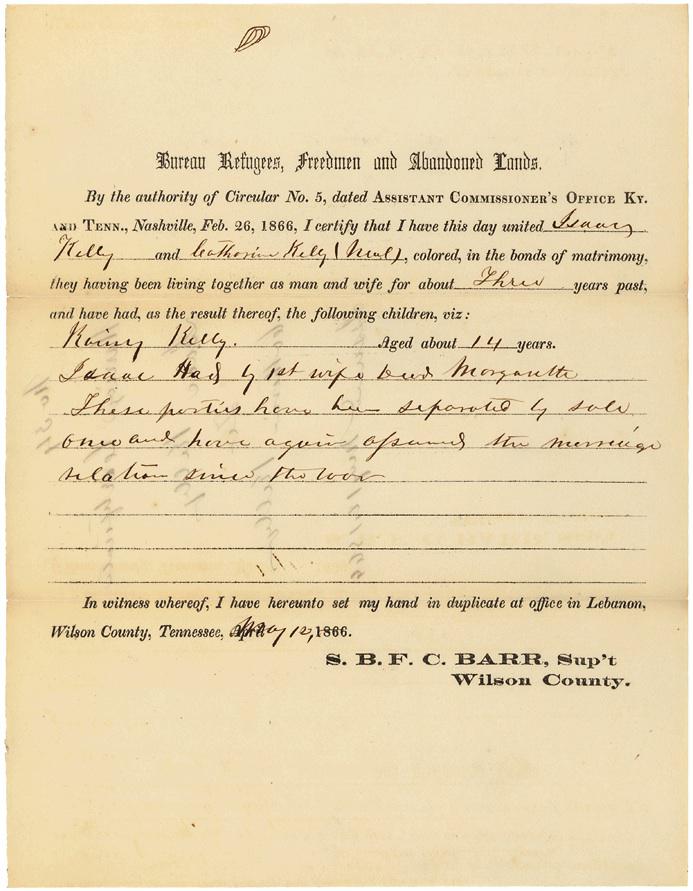 Bureau Refugees, Freedmen and Abandoned Lands.
By the authority of Circular No. 5, dated ASSISTANT COMMISSIONER'S OFFICE KY.
AND TENN., Nashville, Feb. 26, 1866, I certify that I have this day united Isaac
Kelly and Catharine Kelly (Mul), colored, in the bonds of matrimony,
they having been living together as man and wife for about Three years past,
and have had, as the result thereof, the following children, viz:
Kelly. Aged about 14 years.
Isaac Had by 1st wife Margarette
These parties have been separated by sale
once and have again assumed the marriage
relation since the war
In witness whereof, I have hereunto set my hand in duplicate at office in Lebanon,
Wilson County, Tennessee, May 12, 1866.
S. B. F. C. BARR, Sup't
Wilson County.